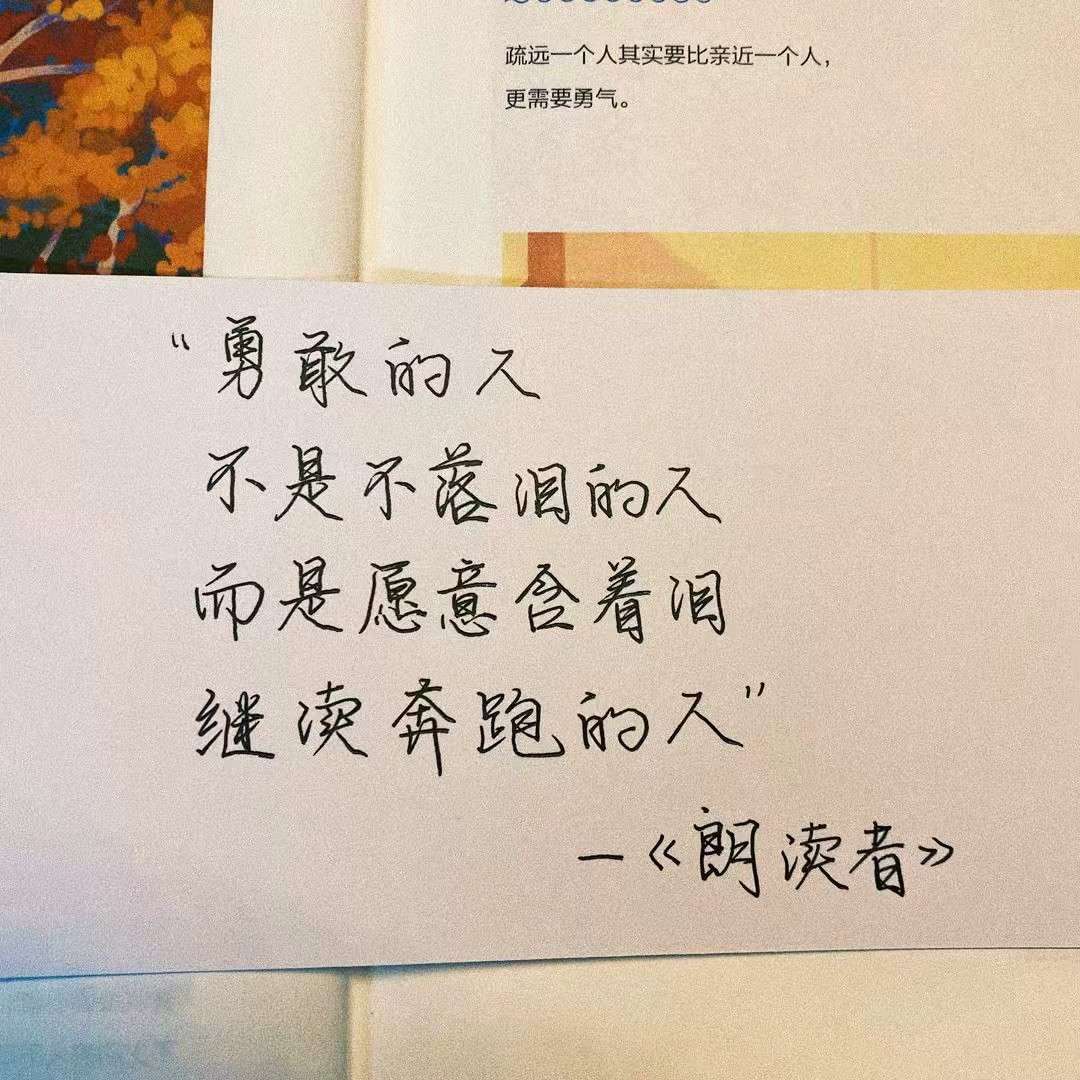 疏远一个人其实要比亲近一个人，
更需要勇气。
“勇敢的人
不是不落泪的人
而是愿意含着泪
继续奔跑的人”
—《朗读者》